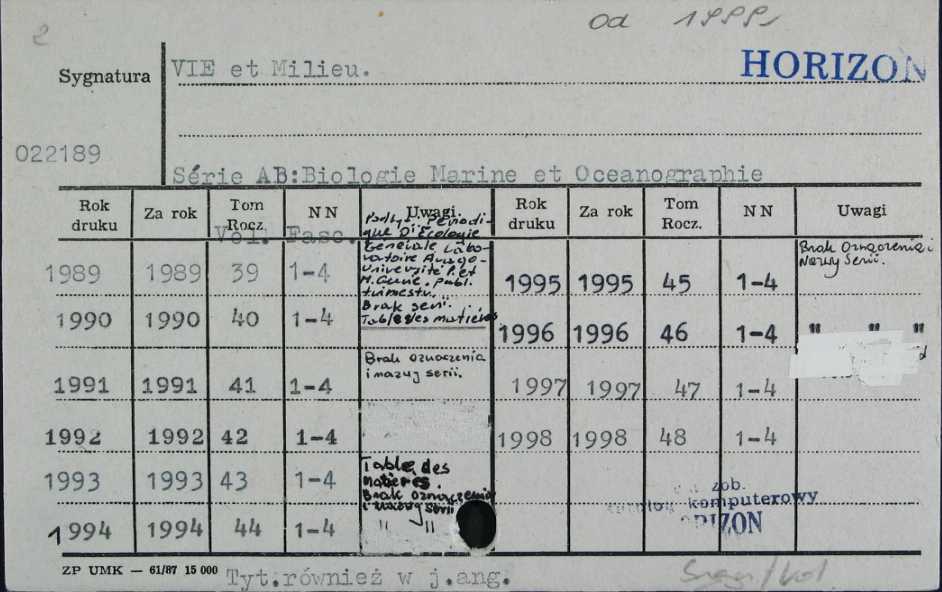 2
od 1999
HORIZON
Sygnatura
VIE et Milieu.
022189
Série AB:Biologie Marine et Oceanographie
Rok druku Za rok Tom Rocz. NN Uwagi Rok druku Za rok Tom Rocz. NN Uwagi
Vol. Fasc.
1989 1989 39 1-4
Periodi-
que D'Ecologie
Générale Labo-
ratoire Arago-
Université P. et
M. Curie. publ.
trimestr.
Brak serii.
Tables des matières
1990 1990 40 1-4
1991 1991 41 1-4 Brak oznaczenia
i nazwy serii.
1992 1992 42 1-4
1993 1993 43 1-4 Table des
Matières.
Brak oznaczenia
i nazwy serii
1994 1994 44 1-4 " "
1995 1995 45 1-4 Brak oznaczenia i
Nazwy Serii.
1996 1996 46 1-4 " " "
1997 1997 47 1-4
1998 1998 48 1-4
zob.
komputerowy
ORIZON
ZP UMK — 61/87 15 000
Tyt.również w j.ang.